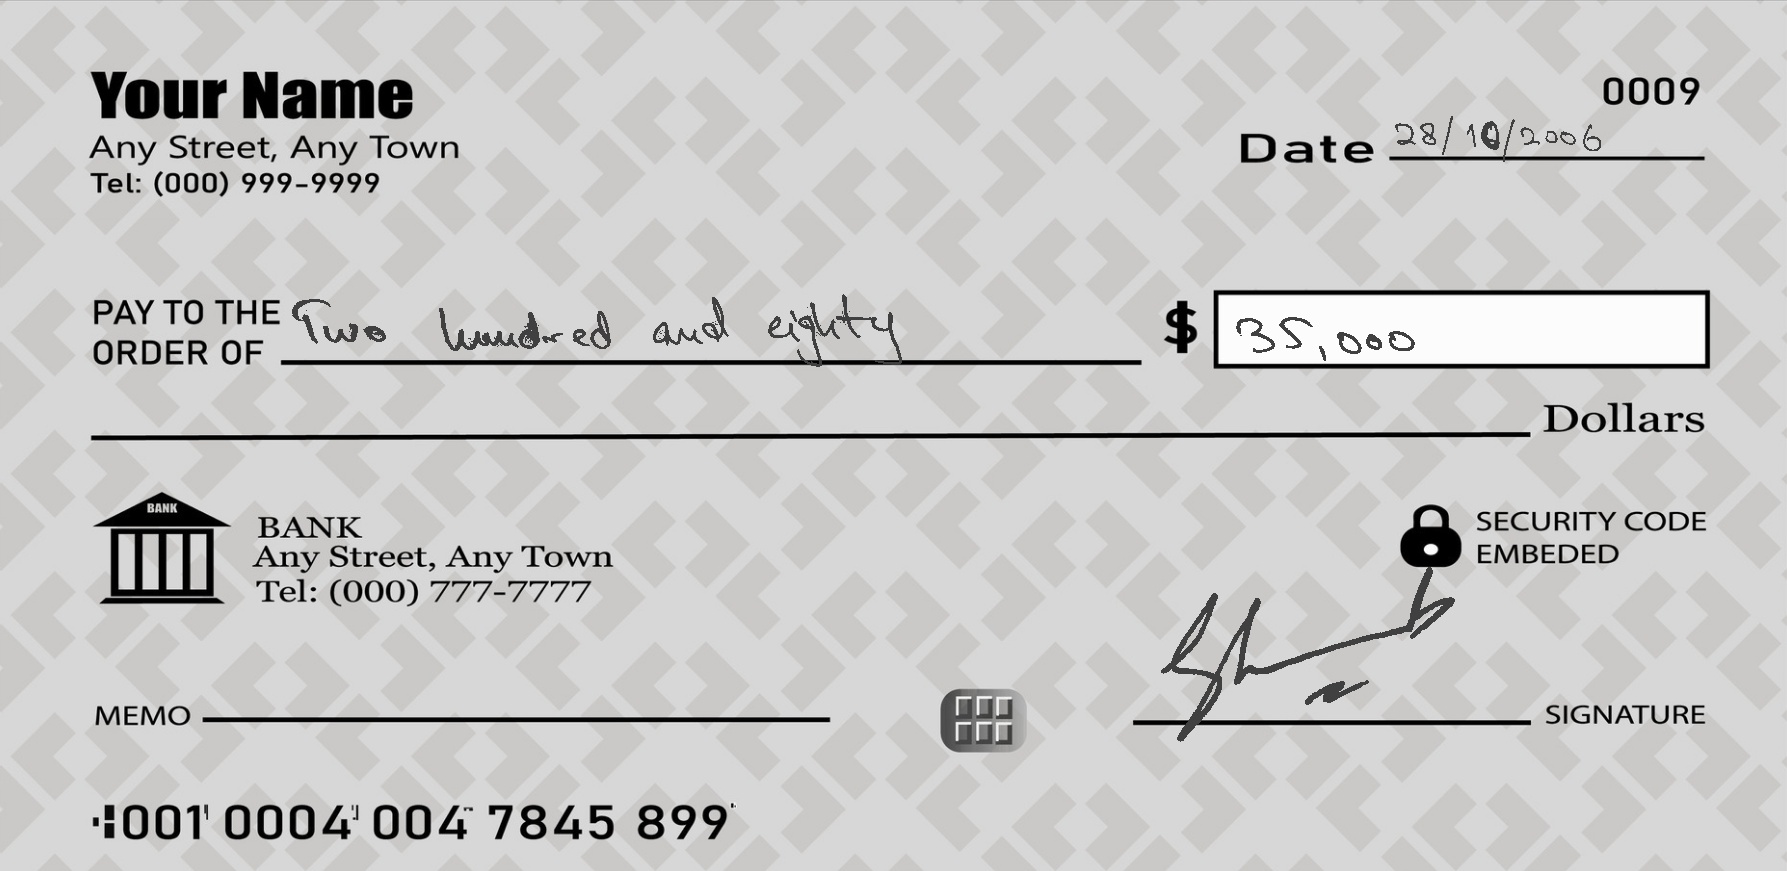 Your Name
Any Street, Any Town
Tel: (000) 999-9999
0009
Date 28/10/2006
PAY TO THE
ORDER OF Two hundred and eighty $ 35,000
Dollars
BANK
BANK
Any Street, Any Town
Tel: (000) 777-7777
SECURITY CODE
EMBEDED
MEMO
SIGNATURE
001 0004 004 7845 899